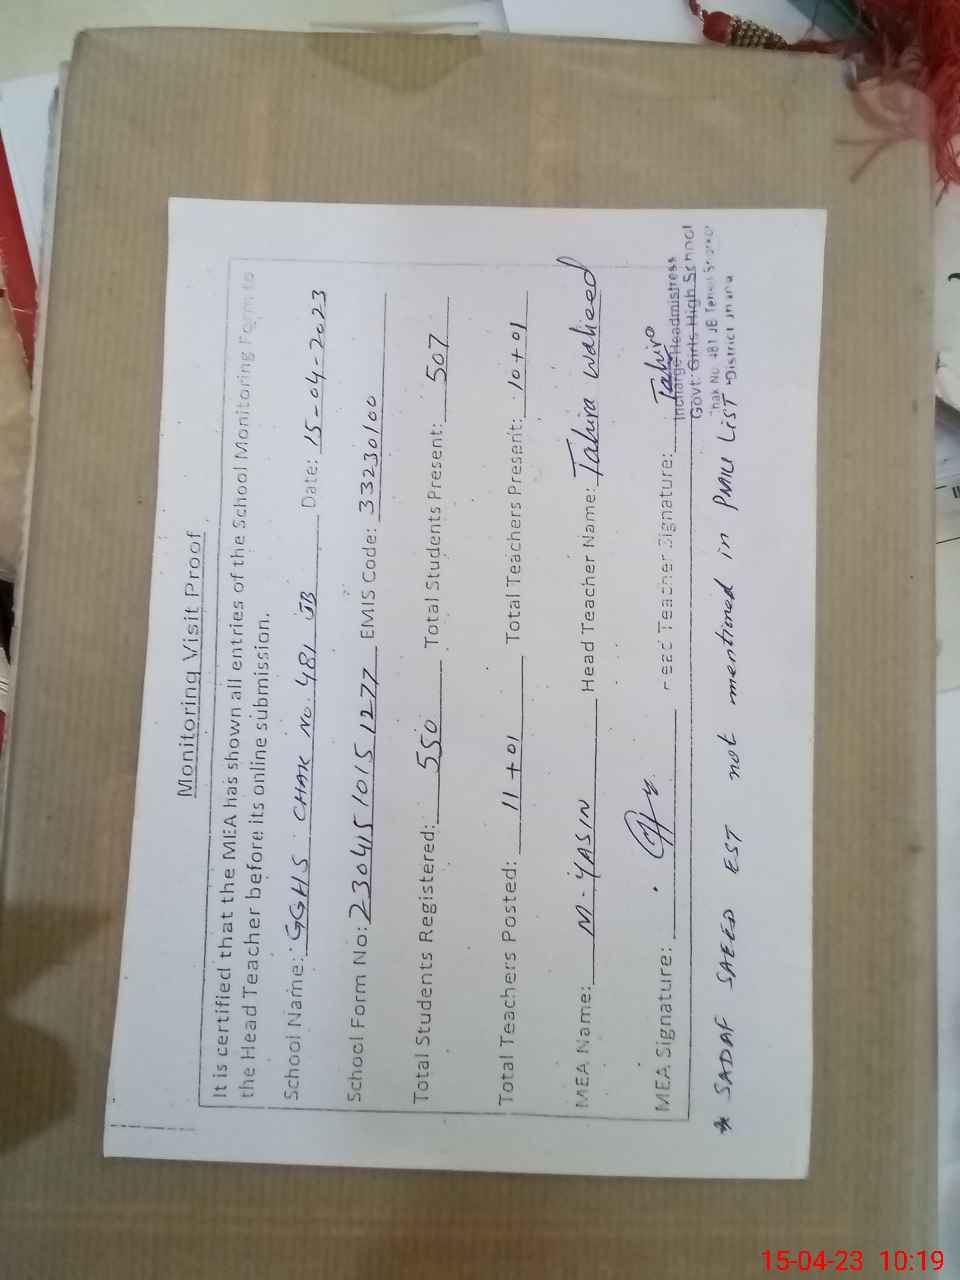 Monitoring Visit Proof
It is certified that the MEA has shown all entries of the School Monitoring Form to
the Head Teacher before its online submission.
School Name: GGHS CHAK No. 481 JB Date: 15-04-2023
School Form No: 230415 1015 1277 EMIS Code: 33230100
Total Students Registered: 550 Total Students Present: 507
Total Teachers Posted: 11+01 Total Teachers Present: 10+01
MEA Name: M. YASIN Head Teacher Name: Tahira Waheed
MEA Signature: Head Teacher Signature: Tahira
Incharge Headmistress
Govt: Girls High School
Chak No 481 JB Tehsil
District
* SADAF SAEED EST not mentioned in PMIU LIST
15-04-23 10:19